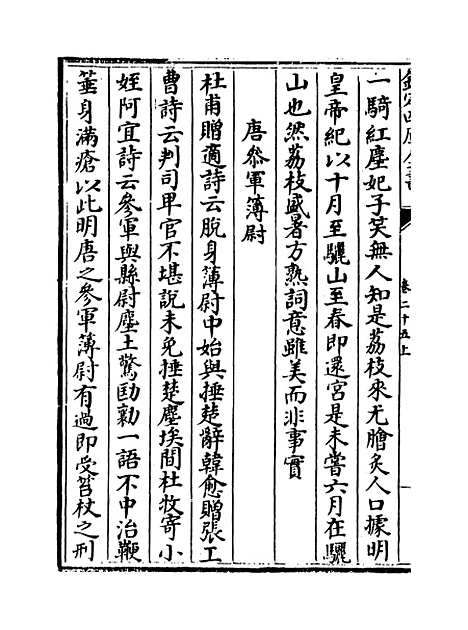 欽定四庫全書
卷二十五上
一騎紅塵妃子笑無人知是荔枝來尤膾炙人口據明
皇帝紀以十月至驪山至春即還宮是未嘗六月在驪
山也然荔枝盛暑方熟詞意雖美而非事實
唐叅軍簿尉
杜甫贈適詩云脫身簿尉中始與捶楚辭韓愈贈張工
曹詩云判司卑官不堪說未免捶楚塵埃間杜牧寄小
姪阿宜詩云參軍與縣尉塵土驚劻勷一語不中治鞭
箠身滿瘡以此明唐之參軍簿尉有過即受笞杖之刑